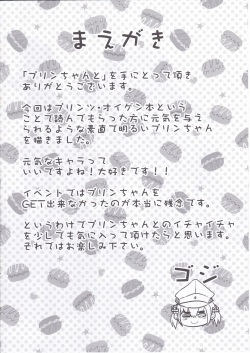 まえがき
「プリンちゃんと」を手にとって頂き
ありがとうございます。
今回はプリンツ・オイゲン本という
ことで読んでもらった方に元気を与え
られるような素直で明るいプリンちゃん
を描きました。
元気なキャラって
いいですよね！大好きです！！
イベントではプリンちゃんを
GET出来なかったのが本当に残念です。
というわけでプリンちゃんとのイチャイチャ
を少しでも気に入って頂けたらと思います。
それではお楽しみ下さい。
ゴジ